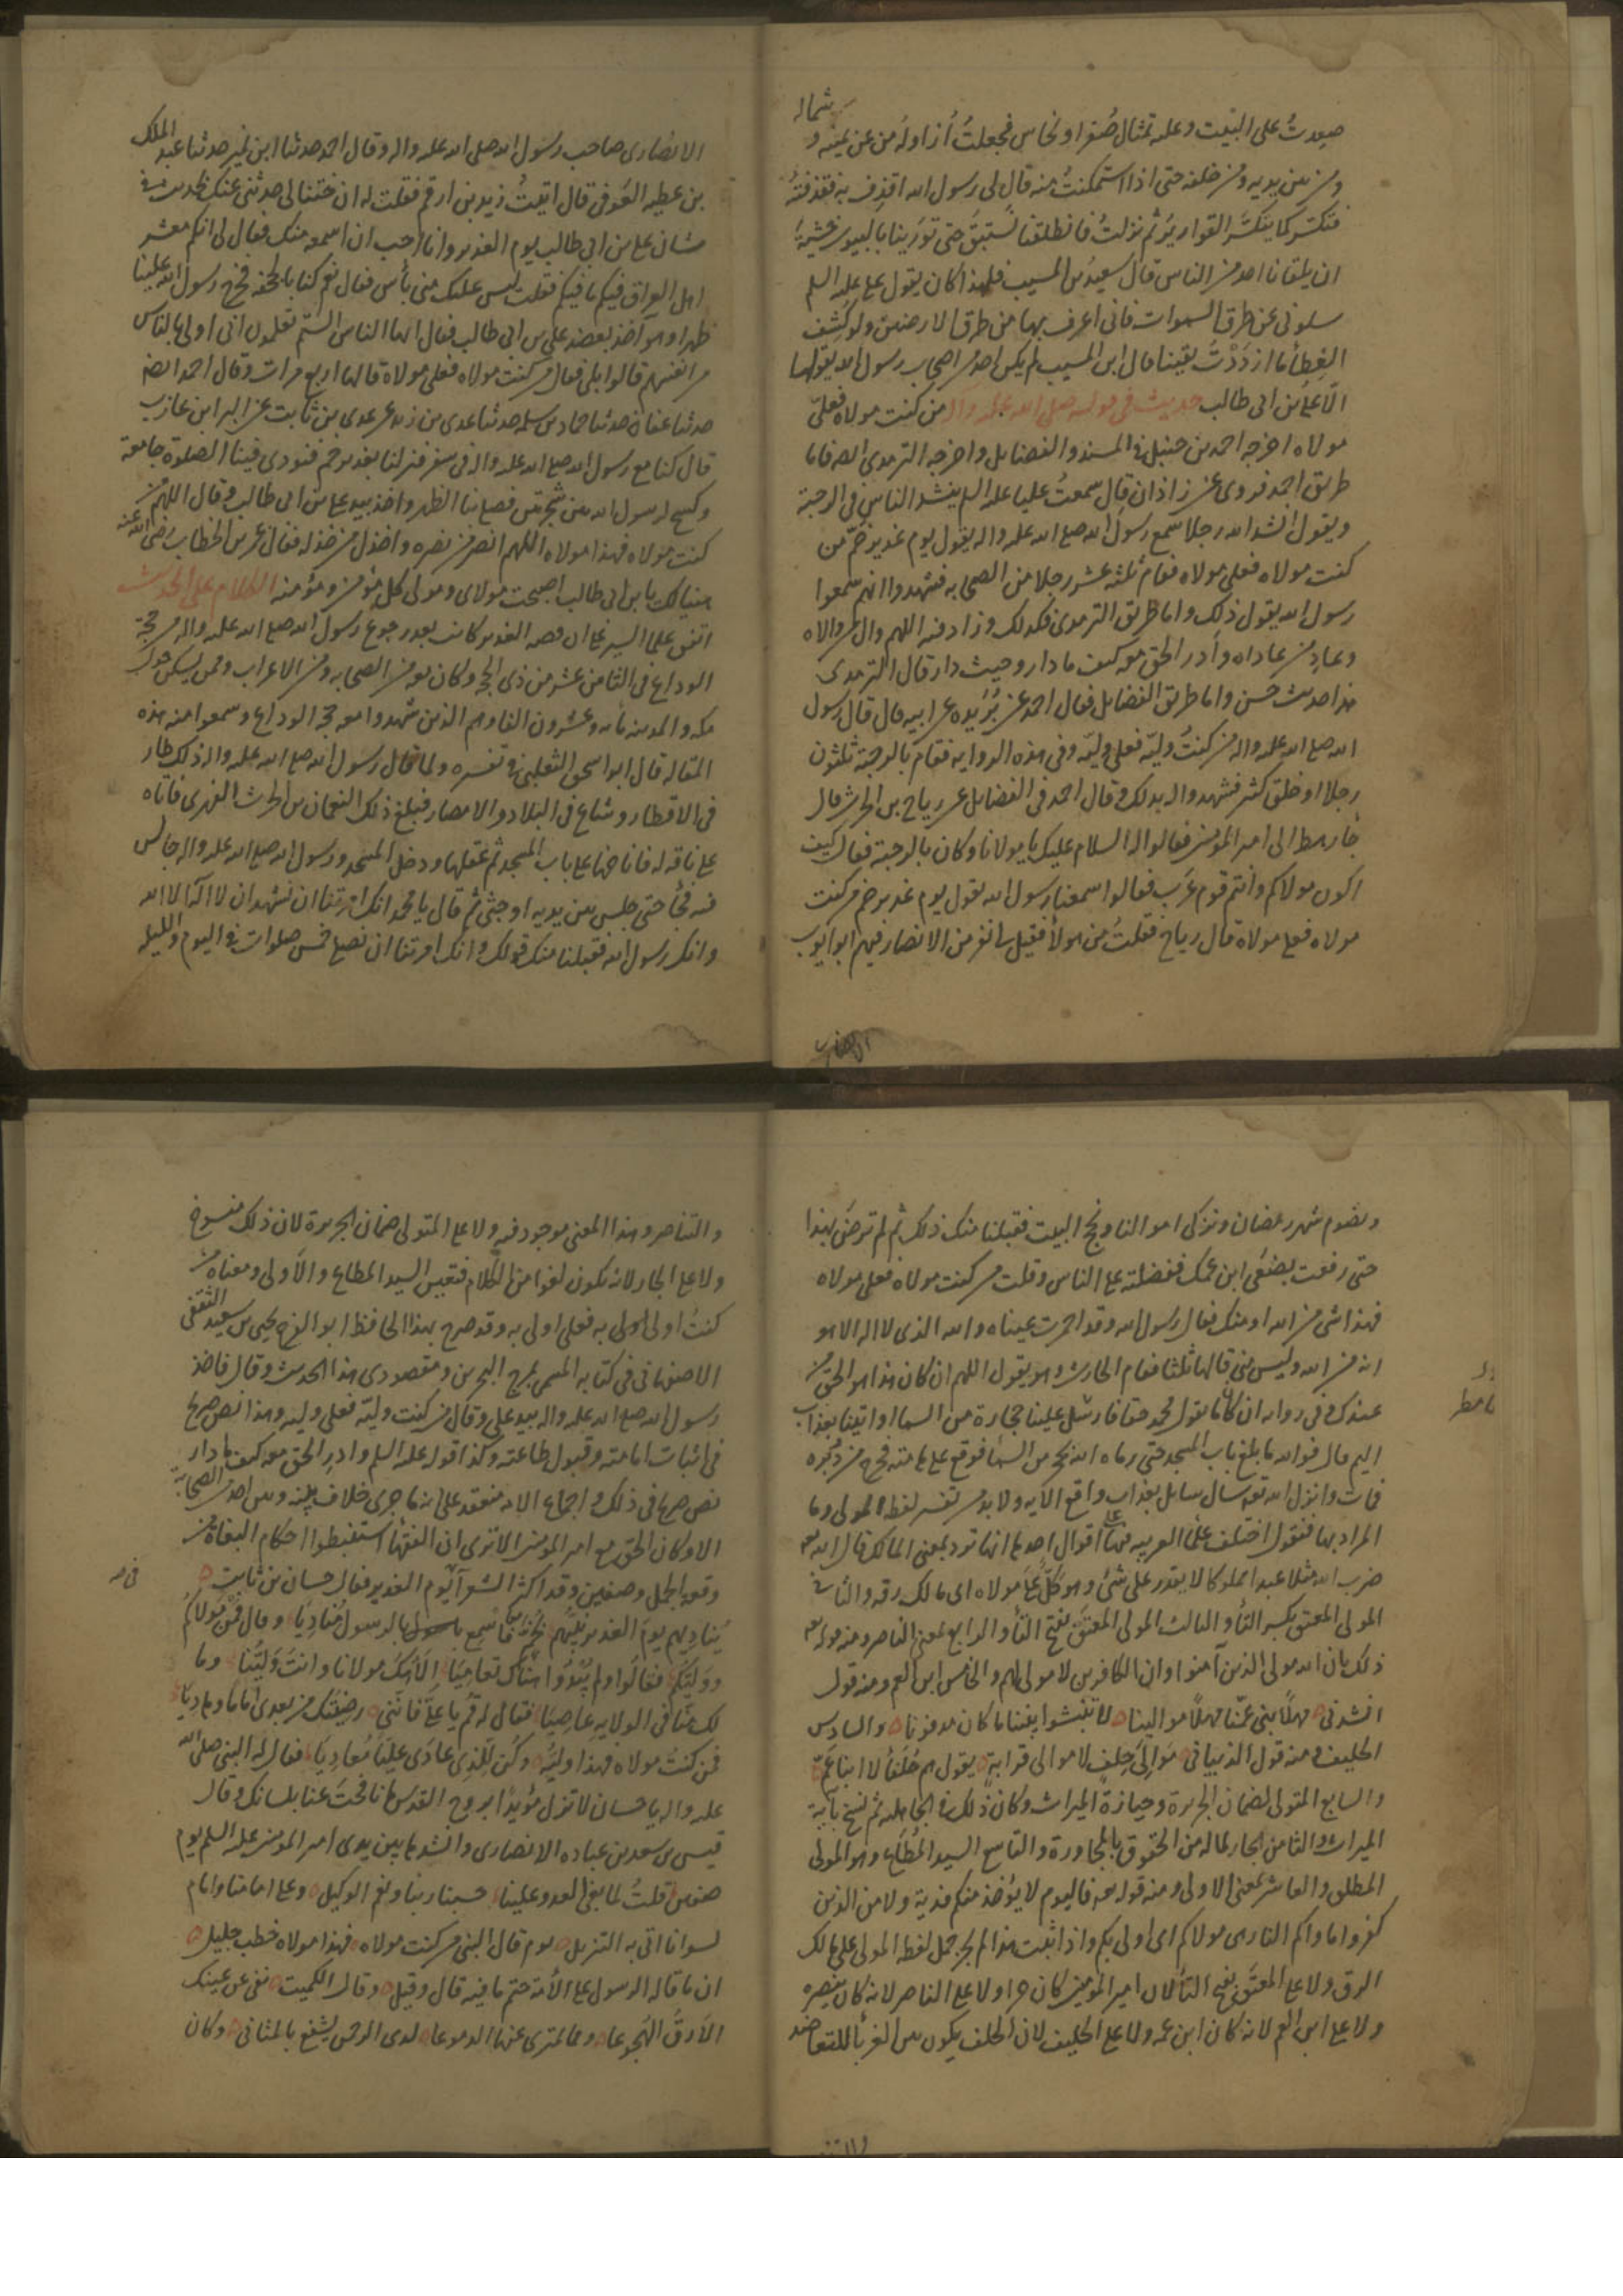 شماله
صعدتُ على البيت وعليه تمثال صُفر او نحاس فجعلتُ أزاوله من عن يمينه و
ومن بين يديه ومن خلفه حتى اذا استمكنتُ منه قال لى رسول الله اقذف به فقذفته
فتكسّر كما يتكسّر القوارير ثم نزلتُ فانطلقنا نستبق حتى تورينا بالبيوت خشية
ان يلقانا احد من الناس قال سعيد بن المسيب فلهذا كان يقول على عليه السلم
سلونى عن طرق السموات فانى اعرف بها من طرق الارضين ولو كُشِف
الغطأ ما ازدَدْتُ يقينا قال ابن المسيب لم يكن احد من اصحاب رسول الله يقولها
الّا على بن ابى طالب حديث فى قوله صلى الله عليه واله من كنت مولاه فعلىّ
مولاه اخرجه احمد بن حنبل فى المسند والفضايل واخرجه الترمدى ايضا فاما
طريق احمد فروى عن زاذان قال سمعتُ عليا عليه السلم ينشد الناس فى الرحبة
ويقول انشد الله رجلا سمع رسول الله صلع الله عليه واله يقول يوم غدير خمّ من
كنت مولاه فعلى مولاه فقام ثلثه عشر رجلا من الصحابه فشهدوا انهم سمعوا
رسول الله يقول ذلك واما طريق الترمدى فكدلك وزاد فيه اللهم وال من والاه
وعادِ من عاداه وأدر الحق معه كيف ما دار وحيث دار قال الترمدى
هذا حديث حسن واما طريق الفضايل فقال احمد عن بُرَيده عن ابيه قال قال رسول
الله صلع الله عليه واله من كنتُ وليّه فعلى وليّه وفى هذه الروايه فقام بالرحبة ثلثون
رجلا او خلق كثر فشهدوا له بدلك وقال احمد فى الفضايل عن رياح بن الحرث قال
جاء رهط الى امير المؤمنين فقالوا له السلام عليك يا مولانا وكان بالرحبة فقال كيف
اكون مولاكم وانتم قوم عَرَب فقالوا سمعنا رسول الله يقول يوم غدير خم من كنت
مولاه فعلى مولاه قال رياح فقلتُ من هولأ فقيل نفر من الانصار فيهم ابو ايوب
الانصارى
الانصارى صاحب رسول الله صلى الله عليه واله وقال احمد حدثنا ابن نمير حدثنا عبد الملك
بن عطيه العَوفى قال اتيتُ زيد بن ارقم فقلت له ان ختنا لى حدثنى عنك بحديث فى
شان على بن ابى طالب يوم الغدير وانا احب ان اسمعه منك فقال لى انكم معشر
اهل العراق فيكم ما فيكم فقلت ليس عليك منى بأس فقال نعم كنا بالجحفه فخرج رسول الله علينا
ظهرا وهو آخذ بعضد على بن ابى طالب فقال ايها الناس الستم تعلمون انى اولى بالناس
من انفسهم قالوا بلى فقال من كنت مولاه فعلى مولاه قالها اربع مرات وقال احمد ايضا
حدثنا عفان حدثنا حماد بن سلمه حدثنا عدى بن زيد عن عدى بن ثابت عن البرا ابن عازب
قال كنا مع رسول الله صلع الله عليه واله فى سفر فنزلنا بغدير خم فنودى فينا الصلوة جامعة
وكسح لرسول الله بين شجرتين فصلع بنا الظهر واخذ بيد على بن ابى طالب وقال اللهم من
كنت مولاه فهذا مولاه اللهم انصر من نصره واخذل من خذله فقال عمر بن الخطاب رضى الله عنه
هنيئا لك يا بن ابى طالب اصبحت مولاى ومولى كل مؤمن ومؤمنه الكلام على الحديث
اتفق علما السير على ان قصه الغدير كانت بعد رجوع رسول الله صلع الله عليه واله من حجة
الوداع فى الثامن عشر من ذى الحجه وكان معه من الصحابه ومن الاعراب وممن يسكن حول
مكه والمدينه مأه وعشرون الفا وهم الذين شهدوا معه حجه الوداع وسمعوا منه هذه
المقاله قال ابو اسحق الثعلبى فى تفسيره ولما قال رسول الله صلع الله عليه واله ذلك طار
فى الاقطار وشاع فى البلاد والامصار فبلغ ذلك النعمان بن الحرث الفهرى فاتاه
على ناقه له فاناخها على باب المسجد ثم عقلها ودخل المسجد ورسول الله صلع الله عليه واله جالس
فيه فجأ حتى جلس بين يديه او جثى ثم قال يا محمد انك امرتنا ان نشهد ان لا اله الا الله
وانك رسول الله فقبلنا منك قولك وانك امرتنا ان نصلع خمس صلوات فى اليوم والليله
ونصوم شهر رمضان ونزكى اموالنا ونحج البيت فقبلنا منك ذلك ثم لم ترض بهذا
حتى رفعت بضبعَى ابن عمك ففضلته على الناس وقلت من كنت مولاه فعلى مولاه
فهذا شى من الله او منك فقال رسول الله وقد احمرت عيناه والله الذى لا اله الا هو
انه من الله وليس منى قالها ثلثا فقام الحارث وهو يقول اللهم ان كان هذا هو الحق من
عندك وفى روايه ان كان ما يقول محمد حقا فارسل علينا حجارة من السما او اتينا بعذاب
اليم قال فو الله ما بلغ باب المسجد حتى رماه الله بحجر من السمأ فوقع على هامته فخرج من دُبُره
فمات وانزل الله تعه سال سايل بعذاب واقع الآيه ولا بد من تفسير لفظه المولى وما
المراد بها فنقول اختلف علمأ العربيه فيها على اقوال احدها انها ترد بمعنى المالك قال الله تعه
ضرب الله مثلا عبدا مملوكا لا يقدر على شئ وهو كَلٌّ على مولاه اى مالك رقه والثانى
المولى المعتِق بكسر التأ والثالث المولى المعتَق بفتح التأ والرابع بمعنى الناصر ومنه قوله تعه
ذلك بان الله مولى الذين آمنوا وان الكافرين لا مولى لهم والخامس ابن العم ومنه قول
انشدنى مهلاً بنى عمّنا مهلاً موالينا لا تنبشوا بيننا ما كان مدفونا والسادس
الحليف ومنه قول الذبيانى مَوَالِىَ حِلفٍ لا موالى قرابةٍ يقول هم حُلَفأُ لا ابنأ عمّ
والسابع المتولى لضمان الجريرة وحيازة الميراث وكان ذلك فى الجاهليه ثم نسخ بآية
الميراث والثامن الجار لما له من الحقوق بالمجاورة والتاسع السيد المُطاع وهو المولى
المطلق والعاشر بمعنى الاولى ومنه قوله تعه فاليوم لا يؤخذ منكم فدية ولا من الذين
كفروا ماواكم النار هى مولاكم اى اولى بكم واذا ثبت هذا لم يجز حمل لفظه المولى على مالك
الرق ولا على المعتَق بفتح التأ لان امير المؤمنين كان حرا ولا على الناصر لانه كان ينصره
ولا على ابن العم لانه كان ابن عمه ولا على الحليف لان الحلف يكون بين الغربأ للتعاضد
والتناصر وهذا المعنى موجود فيه ولا على المتولى ضمان الجريرة لان ذلك منسوخ
ولا على الجار لانه يكون لغوا من الكلام فتعين السيد المطاع والاَولى ومعناه من
كنتُ اولى به فعلى اولى به وقد صرح بهذا الحافظ ابو الفرج يحيى بن سعيد الثقفى
الاصفهانى فى كتابه المسمى بمرج البحرين ومقصودى هذا الحديث وقال فاخذ
رسول الله صلع الله عليه واله بيد على وقال من كنت وليّه فعلى وليه وهذا نص صريح
فى اثبات امامته وقبول طاعته وكذا قوله عليه السلم وادرِ الحق معه كيف ما دار
نص صريح فى ذلك واجماع الامه منعقد على انه ما جرى خلاف بينه وبين احد من الصحابه
الا وكان الحق مع امير المؤمنين الا ترى ان الفقهأ استنبطوا احكام البغاة من
وقعه الجمل وصفين وقد اكثر الشعرآ يوم الغدير فقال حسان بن ثابت
يُناديهم يوم الغدير نبيُّهم بخُمّ فاسمع بالرسول مُناديَا وقال فمن مولاكُم
ووَليّكُم فقالُوا ولم يبدُوا هناك تعامِيَا اِلاَهُك مولانا وانتَ وَليُّنا وما
لك منّا فى الولايه عاصِيَا فقال له قُم يا علىّ فانّنى رضيتك من بعدى امامًا وهاديَا
فمن كنتُ مولاه فهذا وليّهُ وكُن للّذى عادَى عليًا مُعاديَا فقال له النبى صلى الله
عليه واله يا حسان لا تزل مؤيداً بروح القدس ما نافحتَ عنا بلسانك وقال
قيس بن سعد بن عباده الانصارى وانشدها بين يدى امير المؤمنين عليه السلم يوم
صفين قلتُ لما بغى العدو علينا حسبنا ربنا ونعم الوكيل وعلى امامنا وامام
لسوانا اتى به التنزيل يوم قال النبى من كنت مولاه فهذا مولاه خطب جليل
ان ما قاله الرسول على الأمة حتم ما فيه قال وقيل وقال الكميت نفى عن عينك
الاَرقُ الهجوعا وهما تمترى عنها الدموعا لدى الرحمن يشفع بالمثانى وكان